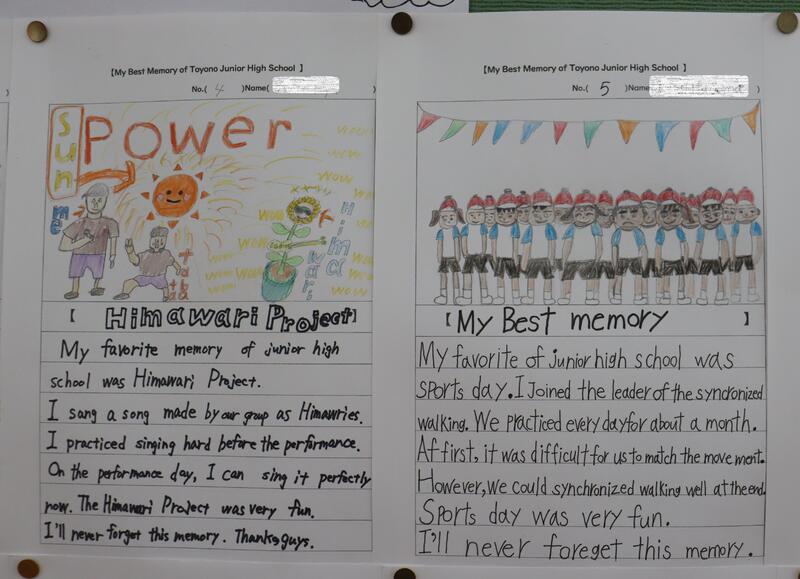 【My Best Memory of Toyono Junior High School 】
No.( 4 )Name( )
Sun
POWER
me
taba
ta
WOW
WOW
WOW
WOW
WOW
WOW
WOW
WOW
WOW
Himawari
【 Himawari Project】
My favorite memory of junior high
school was Himawari Project.
I sang a song made by our group as Himawries.
I practiced singing hard before the performance.
On the performance day, I can sing it perfectly
now. The Himawari Project was very fun.
I'll never forget this memory. Thanks guys.
【My Best Memory of Toyono Junior High School 】
No.( 5 )Name(
【My Best memory 】
My favorite of junior high school was
sports day. I Joined the leader of the syncronized
walking. We practiced every day for about a month.
At first, it was difficult for us to match the movement.
However, we could synchronized walking well at the end.
Sports day was very fun.
I'll never foreget this memory.